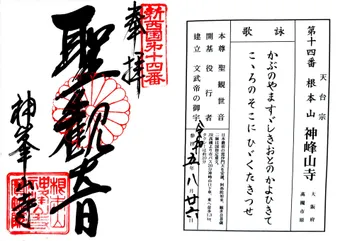 天台宗
第十四番 根本山 神峰山寺
大阪府
高槻市原
詠歌
かぶのやますゞしきおとのかよひきて
こゝろのそこにひゞくたきつせ
本尊 聖観世音
開基 役行者
建立 文武帝の御宇
令和五 八 廿六
新西国第十四番
奉拝
聖観音
神峯山寺